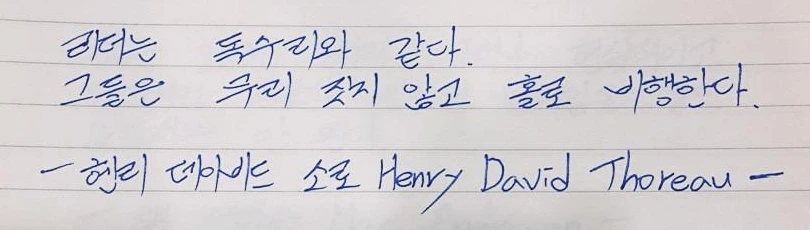 리더는 독수리와 같다.
그들은 무리 짓지 않고 홀로 비행한다.
- 헨리 데이비드 소로 Henry David Thoreau -